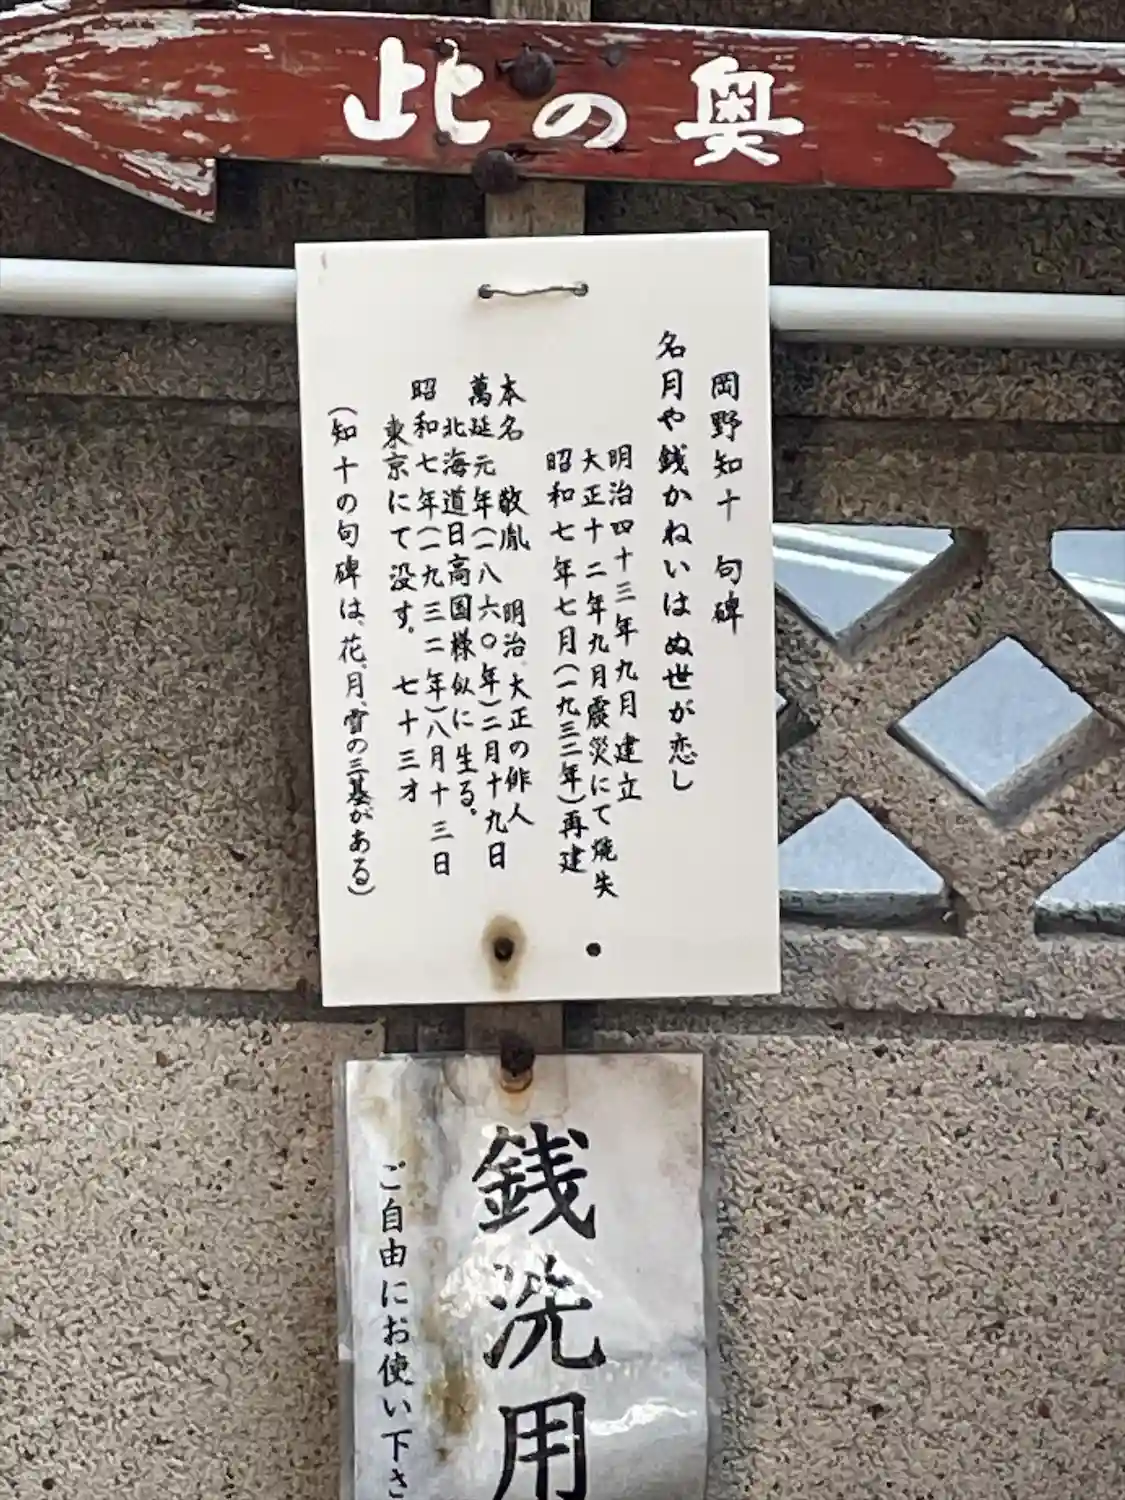 此の奥
岡野知十 句碑
名月や銭かねいはぬ世が恋し
明治四十三年九月建立
大正十二年九月震災にて焼失
昭和七年七月(一九三二年)再建
本名 敬胤 明治、大正の俳人
萬延元年(一八六〇年)二月十九日
北海道日高国様似に生る。
昭和七年(一九三二年)八月十三日
東京にて没す。七十三才
(知十の句碑は、花、月、雪の三基がある)
銭洗用
ご自由にお使い下さ